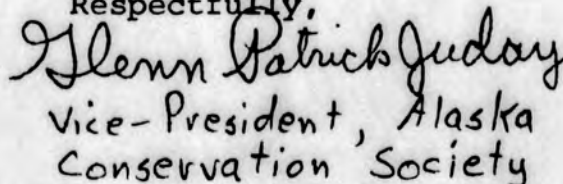 Respectfully,
Glenn Patrick Juday
Vice-President, Alaska
Conservation Society